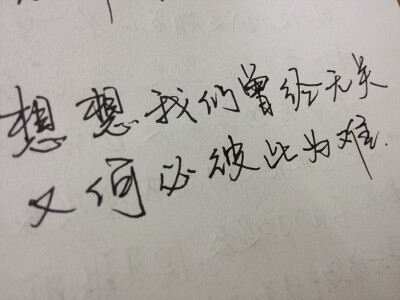 想想我们曾经无关
又何必彼此为难.